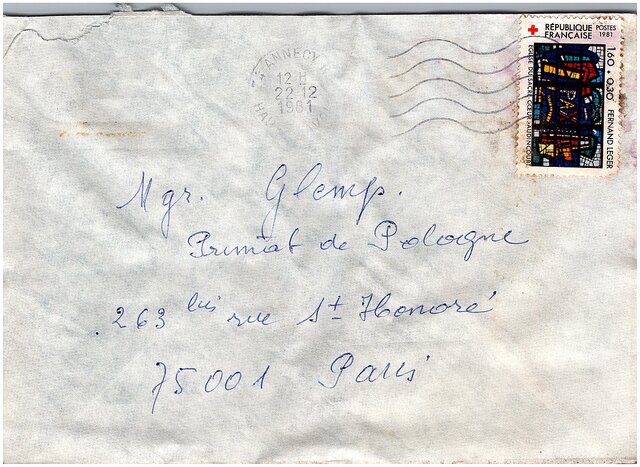 ANNECY
12 H
22-12
1981
HA
RÉPUBLIQUE FRANÇAISE
POSTES 1981
1,60 + 0,30
FERNAND LEGER
ÉGLISE DU SACRÉ-CŒUR AUDINCOURT
PAX
Mgr. Glemp.
Primat de Pologne
263 bis rue St Honoré
75001 Paris